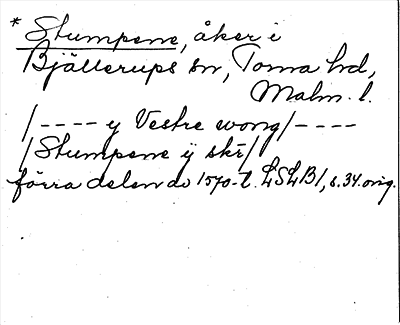 * Stumpene, åker i
Bjällerups sn, Torna hd,
Malm. l.
/---- y Vestre wong/----
/Stumpene ÿ skr/
förra delen av 1570-t. LSLB1, s. 34. orig.